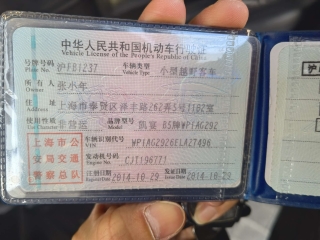 中华人民共和国机动车行驶证
Vehicle License of the People's Republic of China
号牌号码 沪FB1237 车辆类型 小型越野客车
Plate No. Vehicle Type
所有人 张小年
Owner
住址 上海市奉贤区
Address
使用性质 非营运 品牌型号 WP1AG292
Use Character Model
车辆识别代号 WP1AG2926ELA27496
VIN
发动机号码 CJT196771
Engine No.
注册日期 2014-10-29 发证日期 2014-10-29
Register Date Issue Date
上海市公
安局交通
警察总队
沪